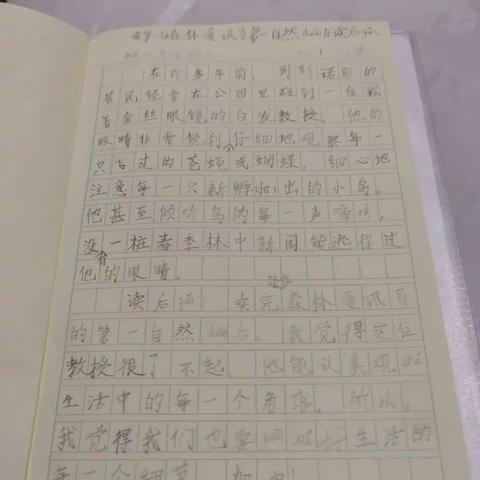 第一位森林通讯员 自然 读后感
在许多年前，列斯诺耶的
居民经常在公园里碰到一位戴
着金丝眼镜的白发教授。他的
眼睛非常锐利，仔细地观察每一
只飞过的苍蝇或蝴蝶，细心地
注意每一只新孵出的小鸟。
他甚至倾听鸟的每一声啼叫。
没有一桩春季林中新闻能逃得过
他的眼睛。
读后感：读完森林通讯员
的第一自然后，我觉得这位
教授很了不起。他能认真观
生活中的每一个角落。所以，
我觉得我们也要 好生活的
每一个细节。加油！